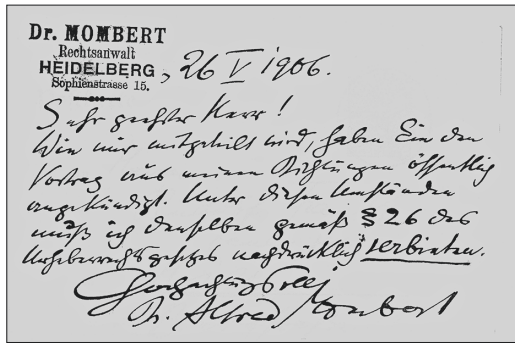 Dr. MOMBERT
Rechtsanwalt
HEIDELBERG, 26 V 1906.
Sophienstrasse 15.
Sehr geehrter Herr!
Wie mir mitgeteilt wird, haben Sie den
Vortrag aus meinen Dichtungen öffentlich
angekündigt. Unter diesen Umständen
muß ich denselben gemäß § 26 des
Urheberrechtsgesetzes nachdrücklich verbieten.
Hochachtungsvoll
Dr. Alfred Mombert